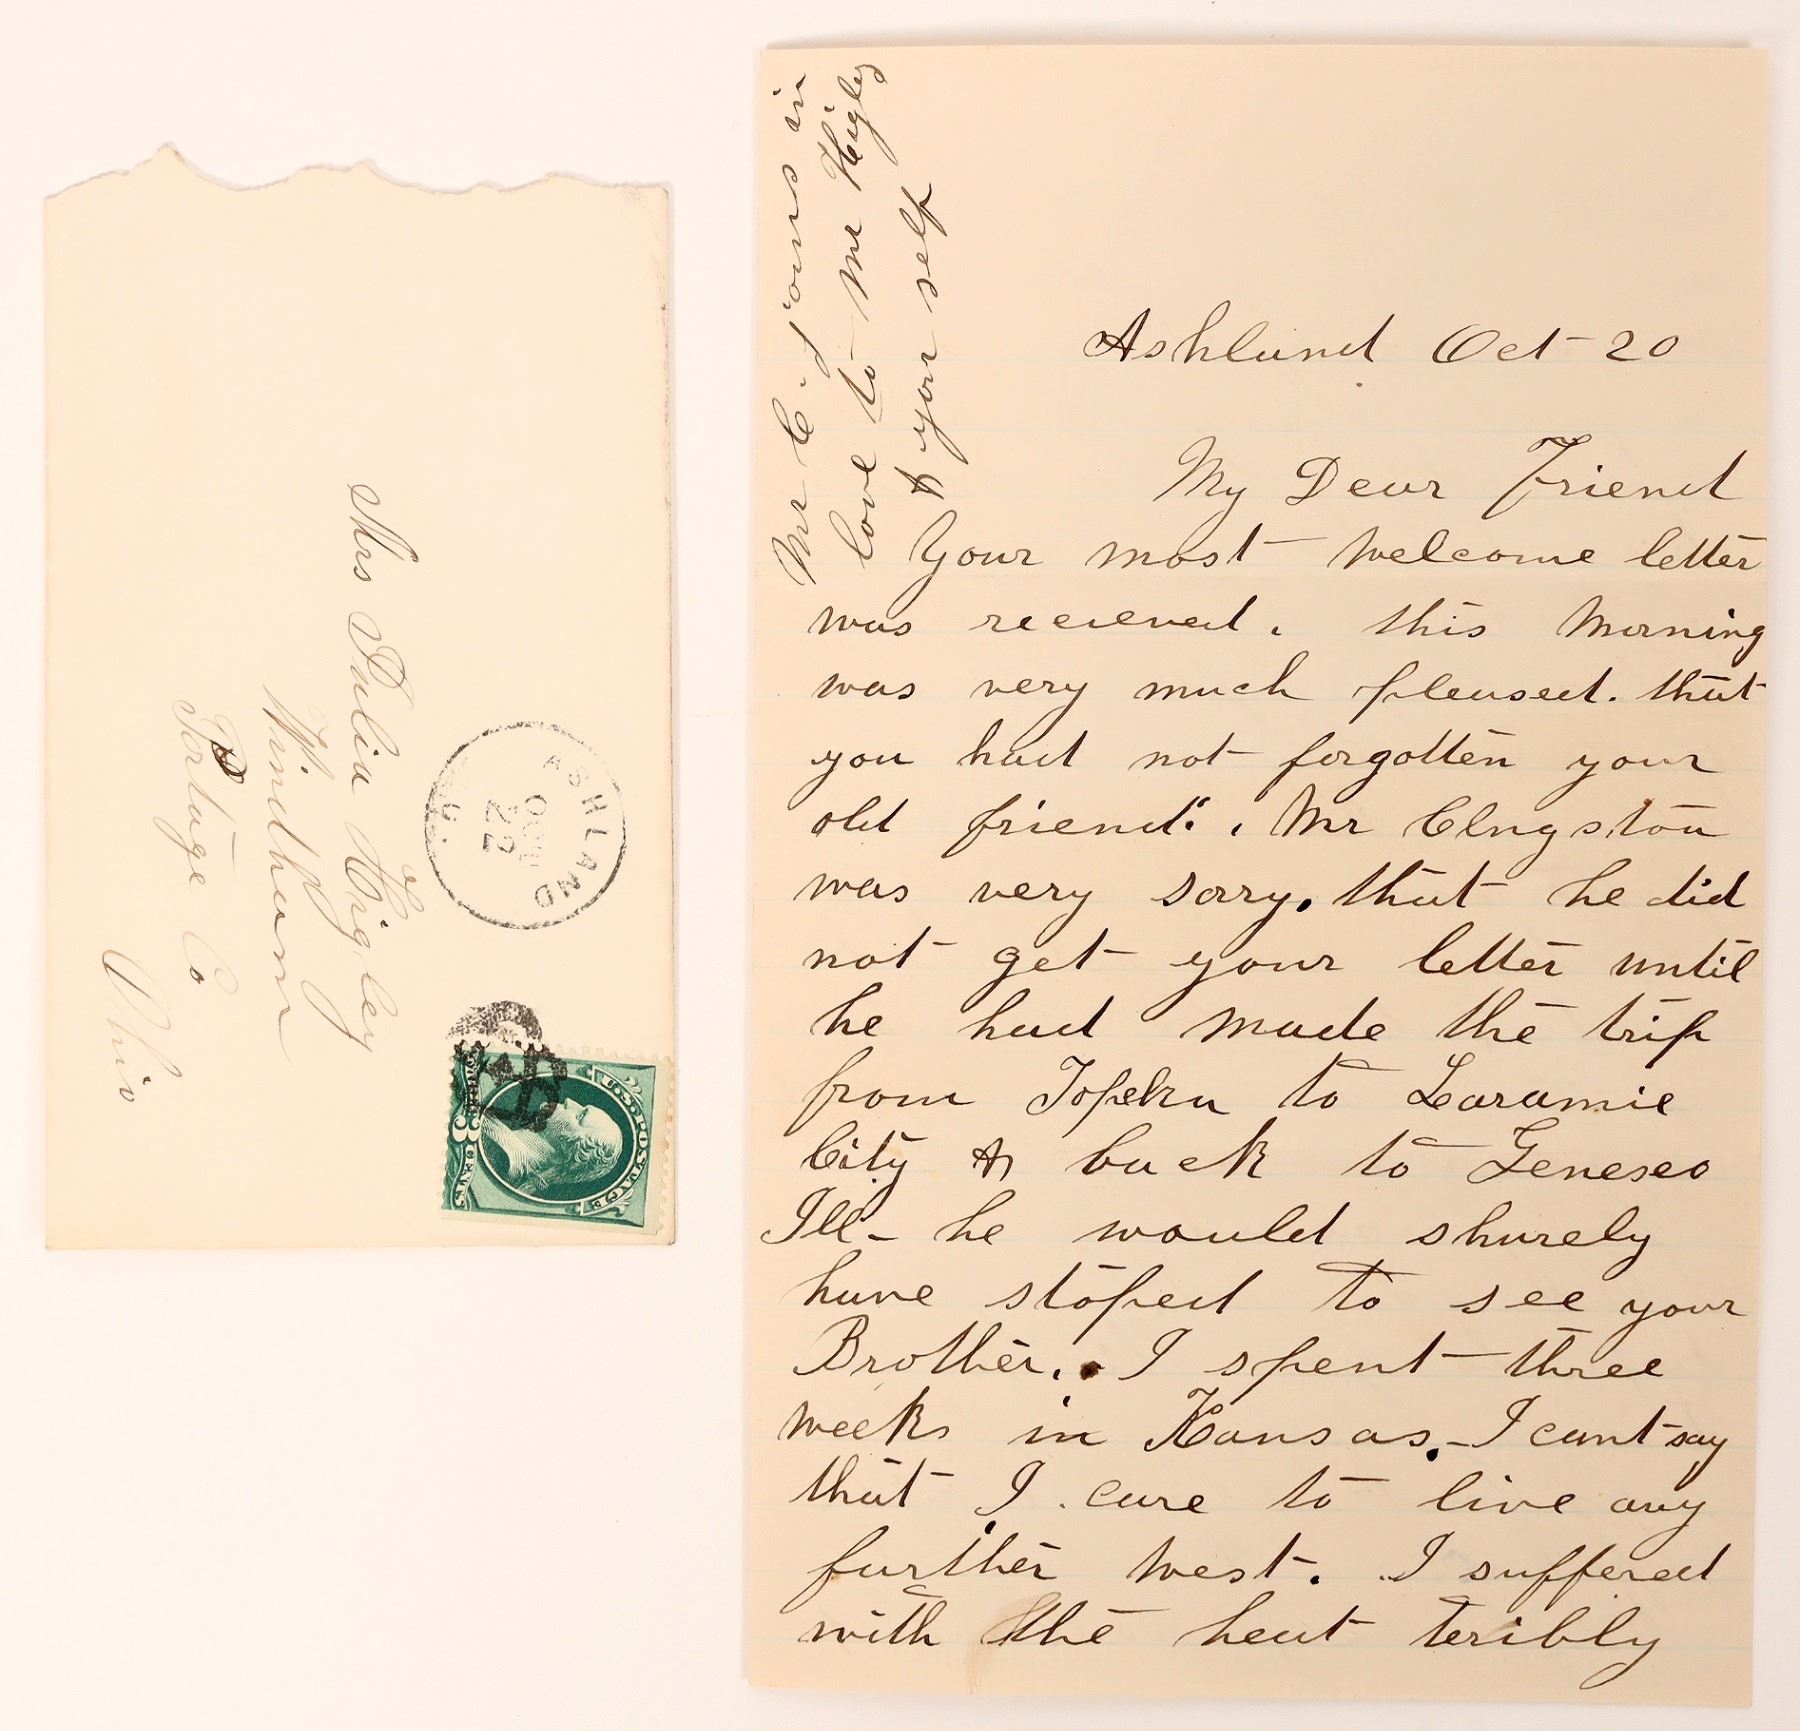 Mrs Julia Higley
Windham
Portage Co
Ohio
ASHLAND
22
O.
U.S. POSTAGE
3
CENTS
Mr C. joins in
love to Mr Higley
& your self
Ashland Oct 20
My Dear Friend
Your most welcome letter
was recieved. this morning
was very much pleased. that
you had not forgotten your
old friend. Mr Clngston
was very sorry. that he did
not get your letter until
he had made the trip
from Topeka to Laramie
City & back to Geneseo
Ill - he would shurely
have stoped to see your
Brother. I spent three
weeks in Kansas. - I cant say
that I care to live any
further west. I suffered
with the heat teribly